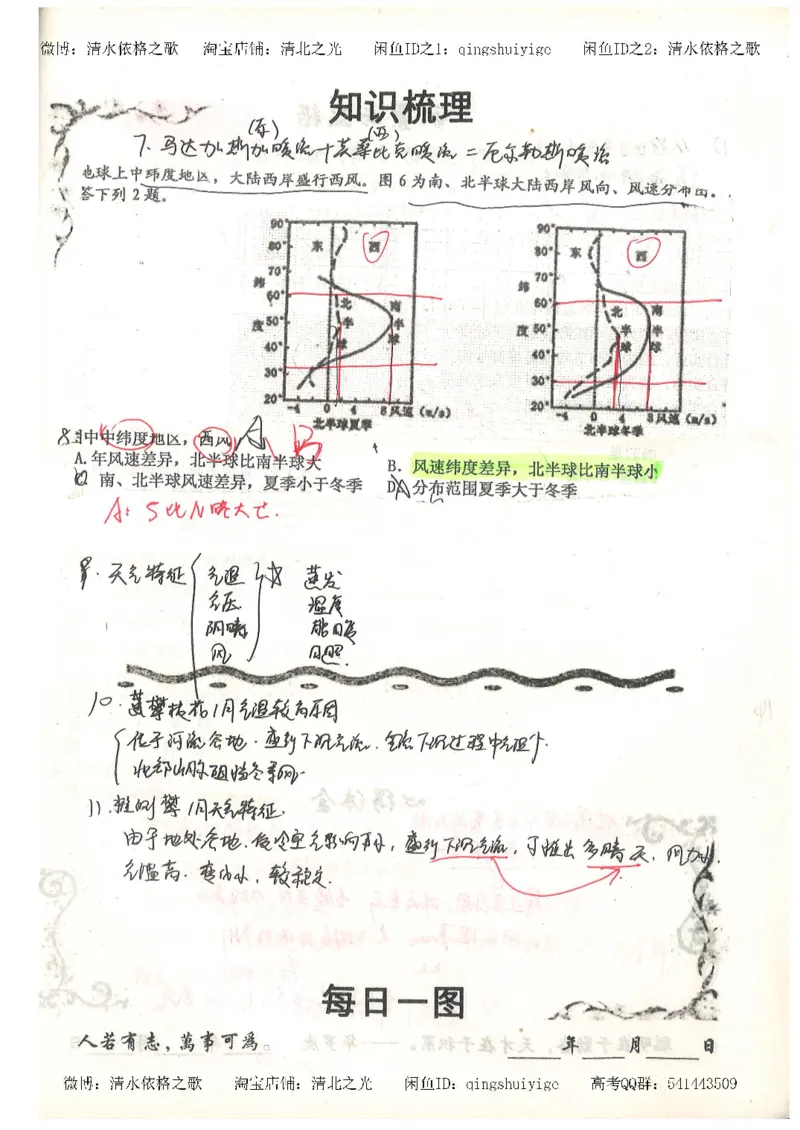 微博：清水依格之歌 淘宝店铺：清北之光 闲鱼ID之1：qingshuiyige 闲鱼ID之2：清水依格之歌
知识梳理
(东) (西)
7. 马达加斯加暖流+莫桑比克暖流=厄尔勒斯暖流
地球上中纬度地区，大陆西岸盛行西风。图6为南、北半球大陆西岸风向、风速分布图。
答下列2题。
90° 80° 70° 60° 50° 40° 30° 20°
纬度
东 西
北半球 南半球
-4 0 4 8风速 (m/s)
北半球夏季
90° 80° 70° 60° 50° 40° 30° 20°
纬度
东 西
北半球 南半球
-4 0 4 8风速 (m/s)
北半球冬季
8. 中中纬度地区，西风 A B
A. 年风速差异，北半球比南半球大
B. 风速纬度差异，北半球比南半球小
南、北半球风速差异，夏季小于冬季
D. 分布范围夏季大于冬季
A: S比N略大亡.
9. 天气特征
气温
气压
阴晴
风
蒸发
湿度
昼照
日照.
10. 攀枝花1月气温较高原因
位于河流谷地. 盛行下沉气流. 气流下沉过程中气温个.
北部山脉阻挡冬季风.
11. 推测攀1月天气特征.
由于地处谷地. 受冷空气影响小, 盛行下沉气流, 可推出多晴天, 风力小.
气温高. 变小, 较稳定.
每日一图
人若有志，萬事可爲。
年 月 日
微博：清水依格之歌 淘宝店铺：清北之光 闲鱼ID：qingshuiyige 高考QQ群：541443509